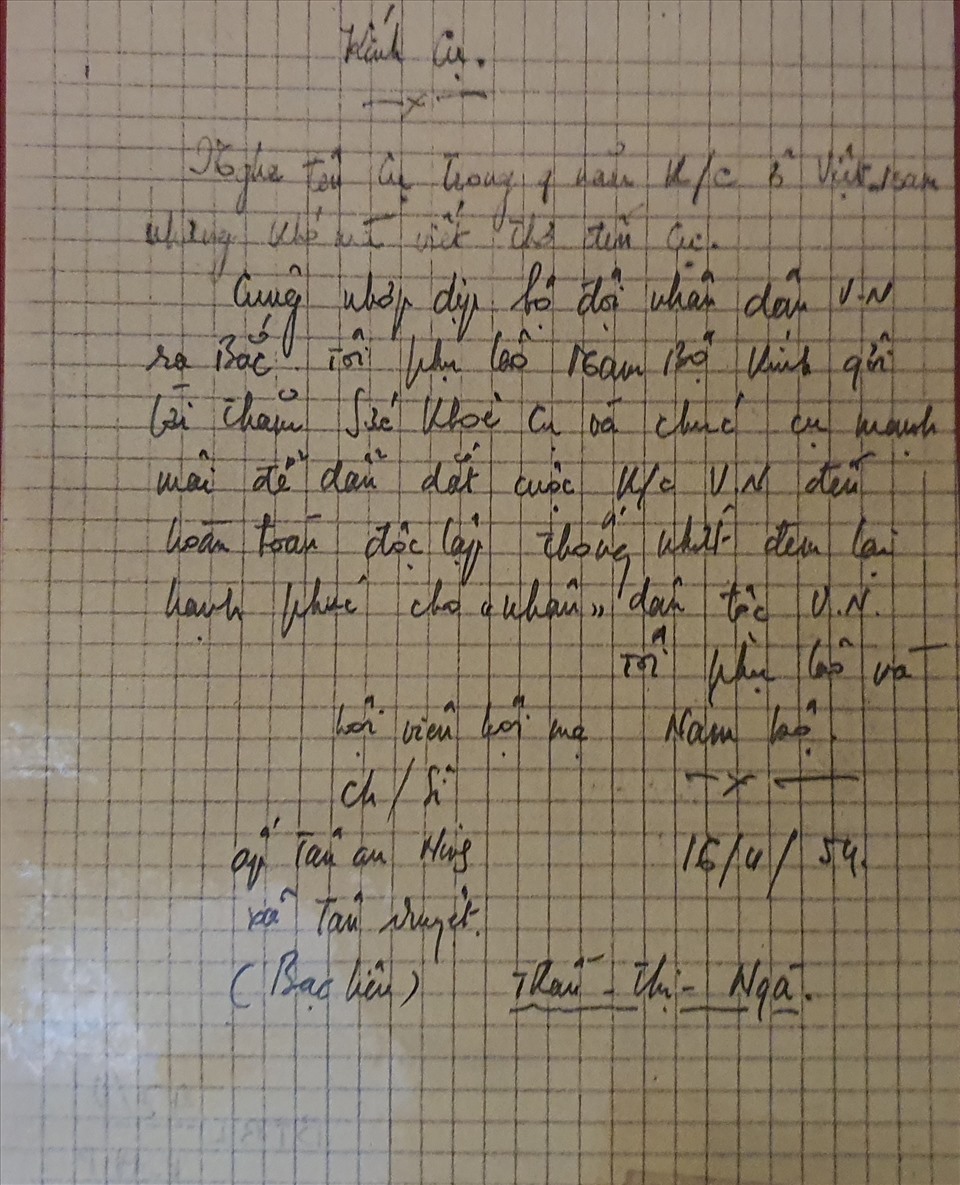 Kính Cụ.
Nghe tên Cụ trong 9 năm K/c ở Việt Nam
nhưng khó mà viết thơ đến Cụ.
Cũng nhơp dịp bộ đội nhân dân V.N
ra Bắc. Tôi phụ lão Nam Bộ kính gởi
lời thăm sức khoẻ Cụ và chúc cụ mạnh
mãi để dẫn dắt cuộc K/c V.N đến
hoàn toàn độc lập thống nhất đem lại
hạnh phúc cho "nhân" dân tộc V.N.
Tôi phụ lão và
hội viên hội mẹ Nam bộ.
ch/sĩ
ấp Tân an Ninh 16/4/54.
xã Tân Duyệt.
(Bạc liêu) Trần-Thị-Ngà.